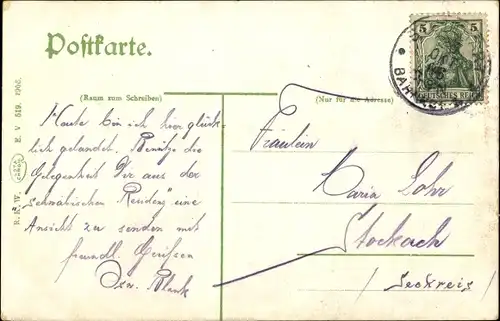 Postkarte.
(Raum zum Schreiben)
(Nur für die Adresse)
5 5
DEUTSCHES REICH
BAH
R. & W. E. V 519. 1905.
Heute bin ich hier glück-
lich gelandet. Benütze die
Gelegenheit Dir aus der
schwäbischen Residenz eine
Ansicht zu senden mit
freundl. Grüßen
Blank
Fräulein
Maria Lohr
Stockach
/Seekreis/